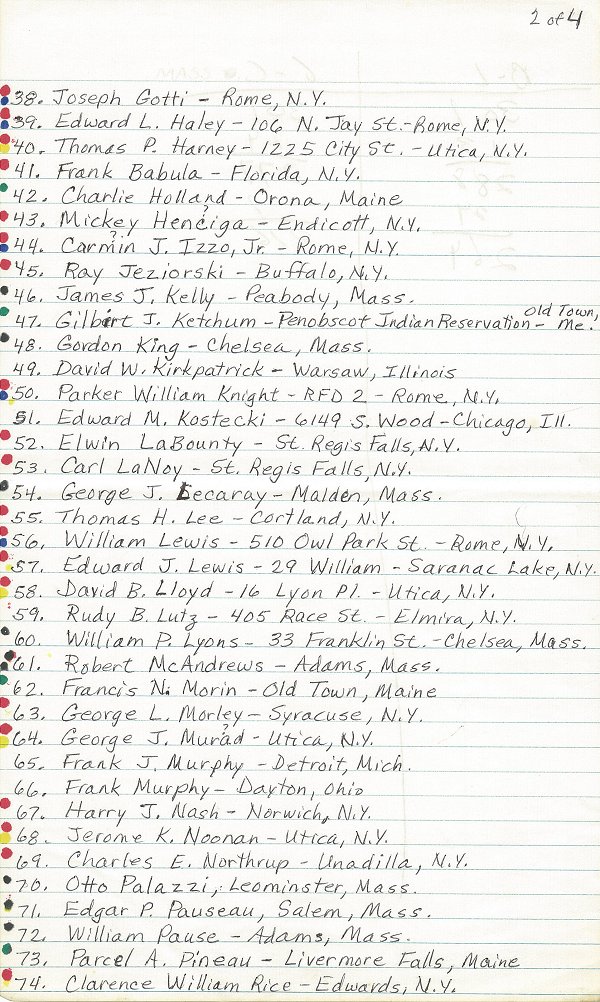 2 of 4
38. Joseph Gotti - Rome, N.Y.
39. Edward L. Haley - 106 N. Jay St. - Rome, N.Y.
40. Thomas P. Harney - 1225 City St. - Utica, N.Y.
41. Frank Babula - Florida, N.Y.
42. Charlie Holland - Orona, Maine
43. Mickey Henciga - Endicott, N.Y.
44. Carmin J. Izzo, Jr. - Rome, N.Y.
45. Ray Jeziorski - Buffalo, N.Y.
46. James J. Kelly - Peabody, Mass.
47. Gilbert J. Ketchum - Penobscot Indian Reservation - Old Town, Me.
48. Gordon King - Chelsea, Mass.
49. David W. Kirkpatrick - Warsaw, Illinois
50. Parker William Knight - RFD 2 - Rome, N.Y.
51. Edward M. Kostecki - 6149 S. Wood - Chicago, Ill.
52. Elwin LaBounty - St. Regis Falls, N.Y.
53. Carl LaNoy - St. Regis Falls, N.Y.
54. George J. Lecaray - Malden, Mass.
55. Thomas H. Lee - Cortland, N.Y.
56. William Lewis - 510 Owl Park St. - Rome, N.Y.
57. Edward J. Lewis - 29 William - Saranac Lake, N.Y.
58. David B. Lloyd - 16 Lyon Pl. - Utica, N.Y.
59. Rudy B. Lutz - 405 Race St. - Elmira, N.Y.
60. William P. Lyons - 33 Franklin St. - Chelsea, Mass.
61. Robert McAndrews - Adams, Mass.
62. Francis N. Morin - Old Town, Maine
63. George L. Morley - Syracuse, N.Y.
64. George J. Murad - Utica, N.Y.
65. Frank J. Murphy - Detroit, Mich.
66. Frank Murphy - Dayton, Ohio
67. Harry J. Nash - Norwich, N.Y.
68. Jerome K. Noonan - Utica, N.Y.
69. Charles E. Northrup - Unadilla, N.Y.
70. Otto Palazzi, Leominster, Mass.
71. Edgar P. Pauseau, Salem, Mass.
72. William Pause - Adams, Mass.
73. Parcel A. Pineau - Livermore Falls, Maine
74. Clarence William Rice - Edwards, N.Y.